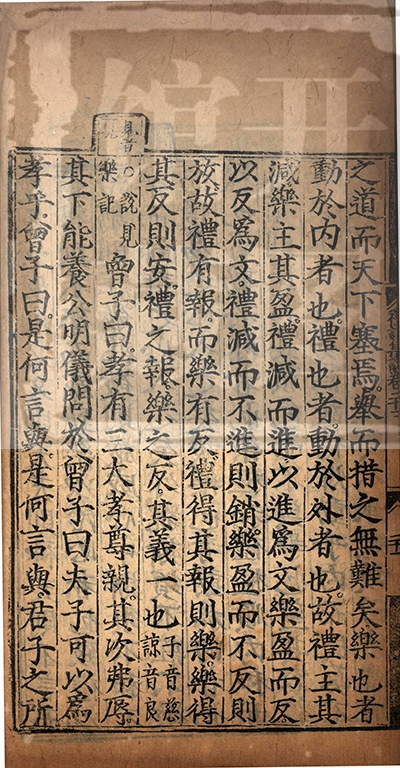 之道而天下塞焉舉而措之無難矣樂也者
動於内者也禮也者動於外者也故禮主其
減樂主其盈禮減而進以進爲文樂盈而反
以反爲文禮減而不進則銷樂盈而不反則
放故禮有報而樂有反禮得其報則樂樂得
其反則安禮之報樂之反其義一也子音慈
諒音良
○說見
樂記
曾子曰孝有三大孝尊親其次弗辱
其下能養公明儀問於曾子曰夫子可以爲
孝乎曾子曰是何言與是何言與君子之所